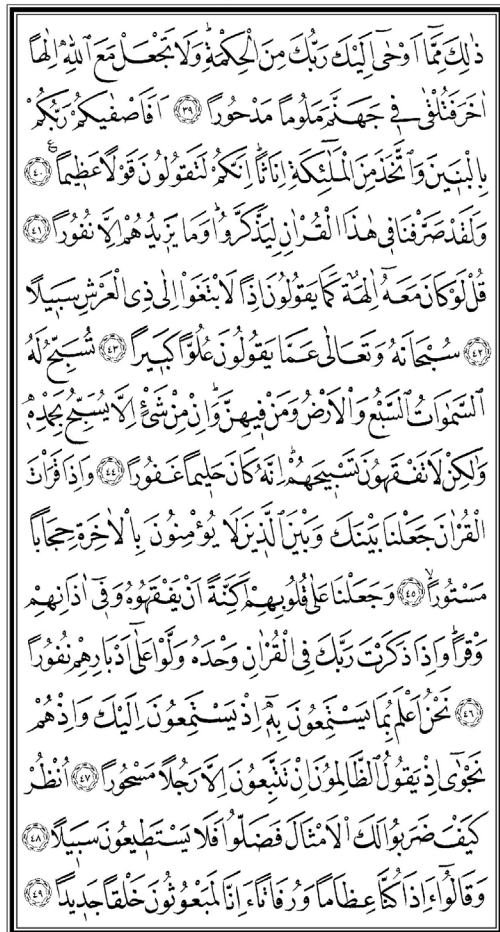 ذٰلِكَ مِمَّٓا اَوْحٰٓى اِلَيْكَ رَبُّكَ مِنَ الْحِكْمَةِۜ وَلَا تَجْعَلْ مَعَ اللّٰهِ اِلٰهاً
اٰخَرَ فَتُلْقٰى ف۪ي جَهَنَّمَ مَلُوماً مَدْحُوراً ﴿٣٩﴾ اَفَاَصْفٰيكُمْ رَبُّكُمْ
بِالْبَن۪ينَ وَاتَّخَذَ مِنَ الْمَلٰٓئِكَةِ اِنَاثاًۜ اِنَّكُمْ لَتَقُولُونَ قَوْلاً عَظ۪يماً۟ ﴿٤٠﴾ ع
وَلَقَدْ صَرَّفْنَا ف۪ي هٰذَا الْقُرْاٰنِ لِيَذَّكَّرُواۜ وَمَا يَز۪يدُهُمْ اِلَّا نُفُوراً ﴿٤١﴾
قُلْ لَوْ كَانَ مَعَهُٓ اٰلِهَةٌ كَمَا يَقُولُونَ اِذاً لَابْتَغَوْا اِلٰى ذِي الْعَرْشِ سَب۪يلاً
﴿٤٢﴾ سُبْحَانَهُ وَتَعَالٰى عَمَّا يَقُولُونَ عُلُواًّ كَب۪يراً ﴿٤٣﴾ تُسَبِّحُ لَهُ
السَّمٰوَاتُ السَّبْعُ وَالْاَرْضُ وَمَنْ ف۪يهِنَّۜ وَاِنْ مِنْ شَيْءٍ اِلَّا يُسَبِّحُ بِحَمْدِه۪
وَلٰكِنْ لَا تَفْقَهُونَ تَسْب۪يحَهُمْۜ اِنَّهُ كَانَ حَل۪يماً غَفُوراً ﴿٤٤﴾ وَاِذَا قَرَأْتَ
الْقُرْاٰنَ جَعَلْنَا بَيْنَكَ وَبَيْنَ الَّذ۪ينَ لَا يُؤْمِنُونَ بِالْاٰخِرَةِ حِجَاباً
مَسْتُوراًۙ ﴿٤٥﴾ وَجَعَلْنَا عَلٰى قُلُوبِهِمْ اَكِنَّةً اَنْ يَفْقَهُوهُ وَف۪ٓي اٰذَانِهِمْ
وَقْراًۜ وَاِذَا ذَكَرْتَ رَبَّكَ فِي الْقُرْاٰنِ وَحْدَهُ وَلَّوْا عَلٰٓى اَدْبَارِهِمْ نُفُوراً
﴿٤٦﴾ نَحْنُ اَعْلَمُ بِمَا يَسْتَمِعُونَ بِه۪ٓ اِذْ يَسْتَمِعُونَ اِلَيْكَ وَاِذْ هُمْ
نَجْوٰٓى اِذْ يَقُولُ الظَّالِمُونَ اِنْ تَتَّبِعُونَ اِلَّا رَجُلاً مَسْحُوراً ﴿٤٧﴾ اُنْظُرْ
كَيْفَ ضَرَبُوا لَكَ الْاَمْثَالَ فَضَلُّوا فَلَا يَسْتَط۪يعُونَ سَب۪يلاً ﴿٤٨﴾
وَقَالُٓوا ءَاِذَا كُنَّا عِظَاماً وَرُفَاتاً ءَاِنَّا لَمَبْعُوثُونَ خَلْقاً جَد۪يداً ﴿٤٩﴾